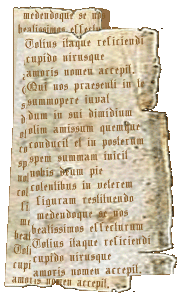 medendoque se no
beatissimos effectu
Totius itaque reficiendi
cupido virusque
amoris nomen accepit.
Qui nos praesenti in te
summopere iuvat
dum in sui dimidium
olim amissum quemque
conducit et in posterum
spem summam iniicit
nobis cum pie
colentibus in veterem
figuram restituendo
medendoque se nos
beatissimos effecturum
Totius itaque reficiendi
cupido virusque
amoris nomen accepit.
amoris nomen accepit.